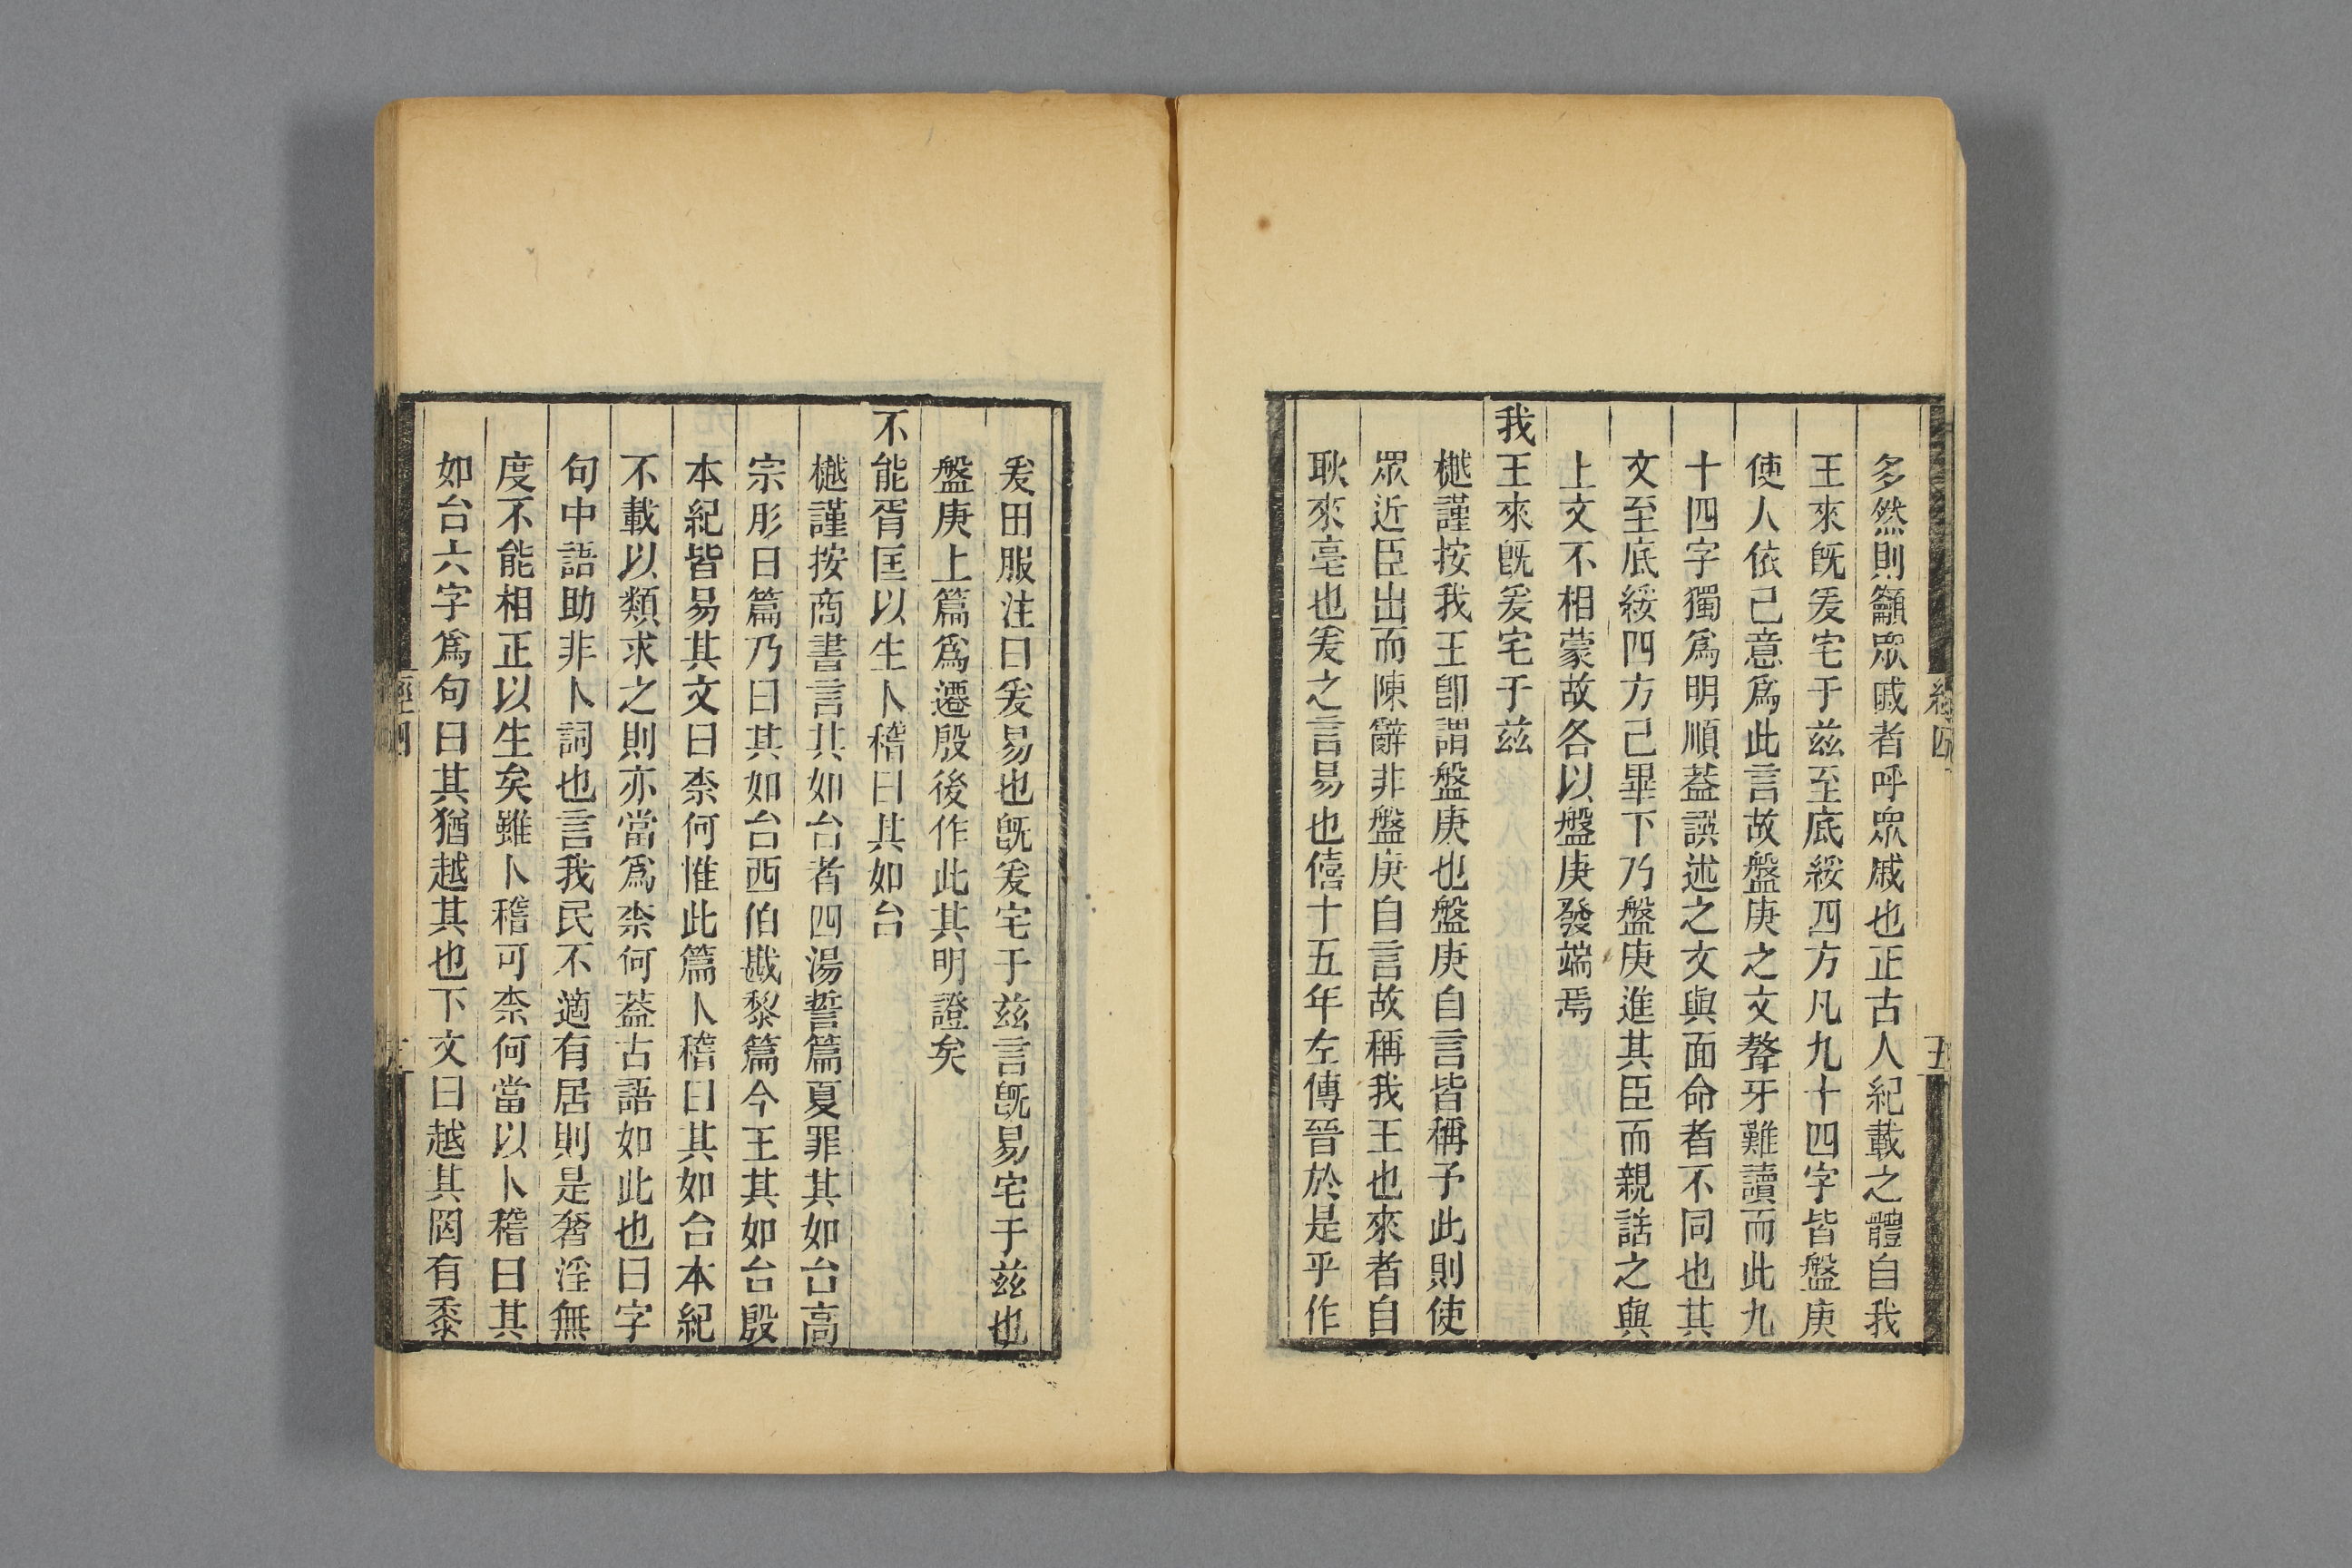 多然則籲眾慼者呼眾戚也正古人紀載之體自我
王來旣爰宅于茲至底綏四方凡九十四字皆盤庚
使人依己意爲此言故盤庚之文聱牙難讀而此九
十四字獨爲明順蓋譔述之文與面命者不同也其
文至底綏四方己畢下乃盤庚進其臣而親話之與
上文不相蒙故各以盤庚發端焉
我王來旣爰宅于茲
樾謹按我王卽謂盤庚也盤庚自言皆稱予此則使
眾近臣出而陳辭非盤庚自言故稱我王也來者自
耿來亳也爰之言易也僖十五年左傳晉於是乎作
爰田服注曰爰易也旣爰宅于茲言旣易宅于茲也
盤庚上篇爲遷殷後作此其明證矣
不能胥匡以生卜稽曰其如台
樾謹按商書言其如台者四湯誓篇夏罪其如台高
宗肜日篇乃曰其如台西伯戡黎篇今王其如台殷
本紀皆易其文曰柰何惟此篇卜稽曰其如台本紀
不載以類求之則亦當爲柰何蓋古語如此也曰字
句中語助非卜詞也言我民不適有居則是奢淫無
度不能相正以生矣雖卜稽可柰何當以卜稽曰其
如台六字爲句曰其猶越其也下文曰越其罔有黍